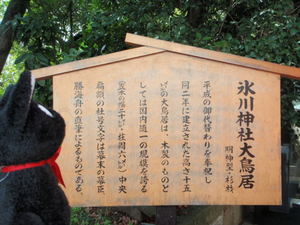 氷川神社大鳥居
明神型・杉柾
平成の御代替わりを奉祝し
同二年に建立された高さ十五
㍍の大鳥居は、木製のものと
しては国内随一の規模を誇る
中央
扁額の社号文字は幕末の幕臣
勝海舟の直筆によるものである。